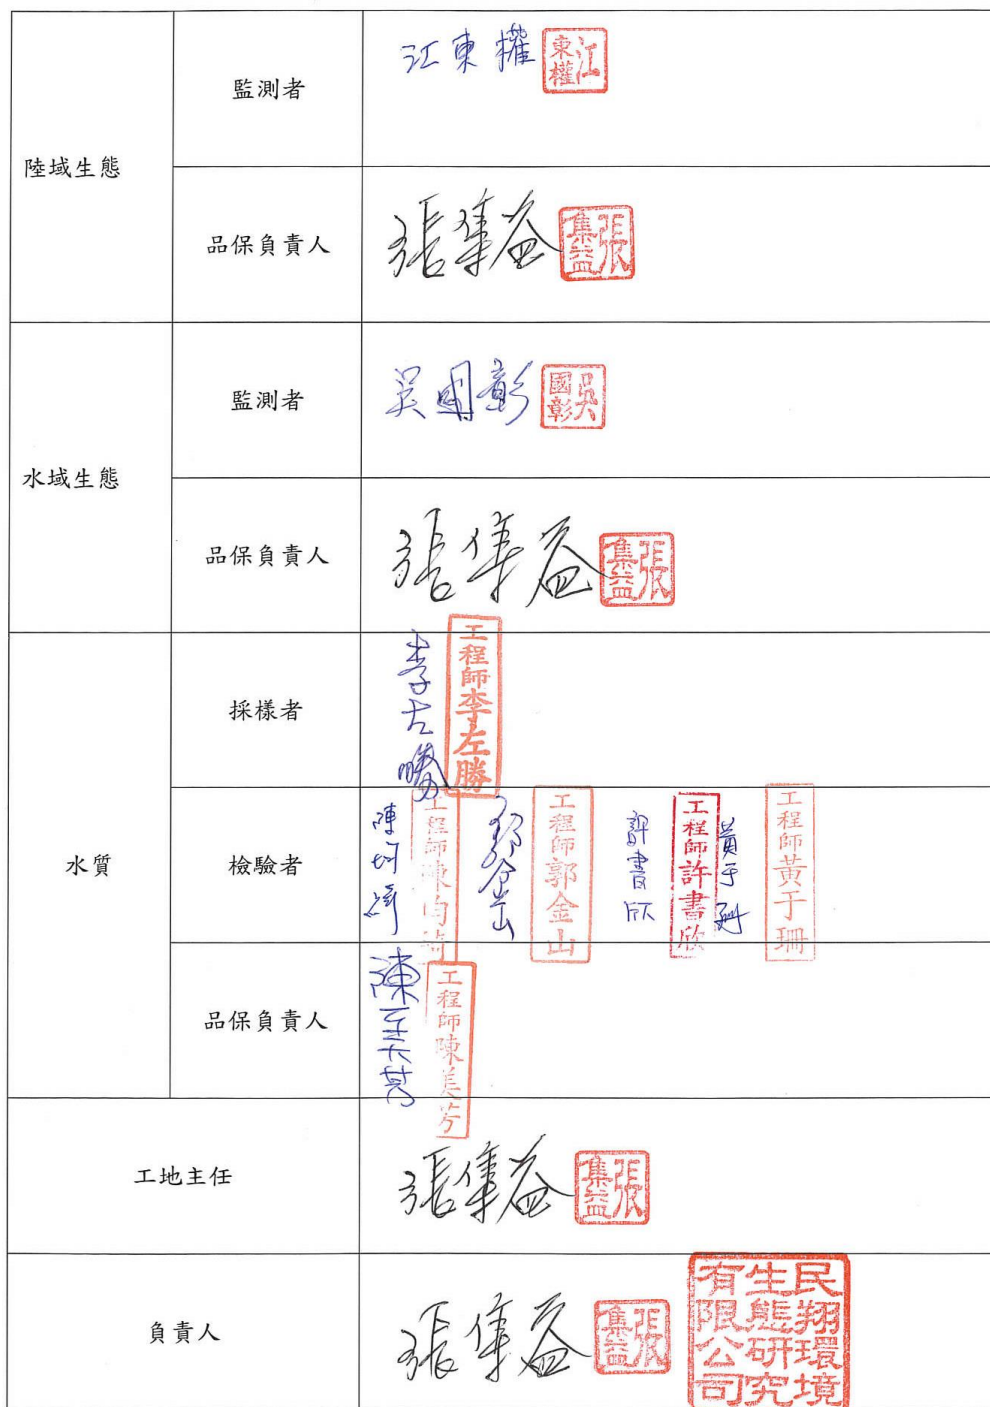 陸域生態
監測者
江東權
江東權
品保負責人
張集益
張集益
水域生態
監測者
吳國彰
吳國彰
品保負責人
張集益
張集益
水質
採樣者
李左勝
工程師李左勝
檢驗者
工程師陳
郭金山
工程師郭金山
許書欣
工程師許書欣
黃于珊
工程師黃于珊
品保負責人
陳美芳
工程師陳美芳
工地主任
張集益
張集益
負責人
張集益
張集益
民翔環境生態研究有限公司